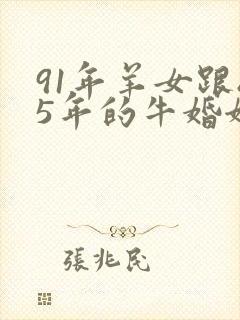 91年羊女跟
5年的牛婚
張兆民